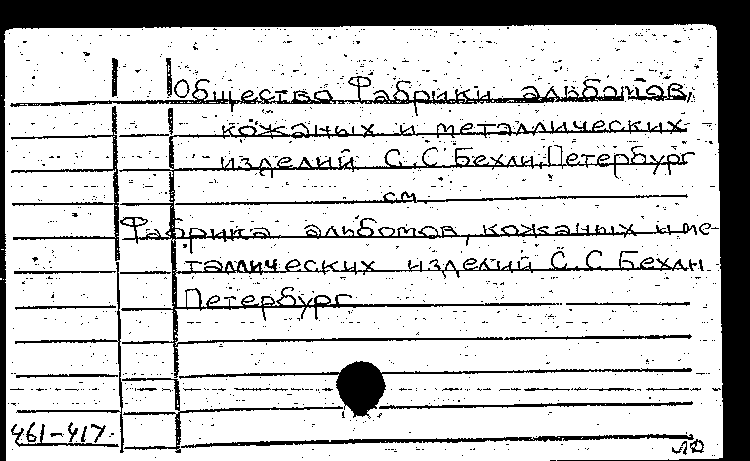 Общество Фабрики альбомов,
кожаных и металлических
изделий С.С Бехли, Петербург
см.
Фабрика альбомов, кожаных и ме-
таллических изделий С.С. Бехли
Петербург
461-417